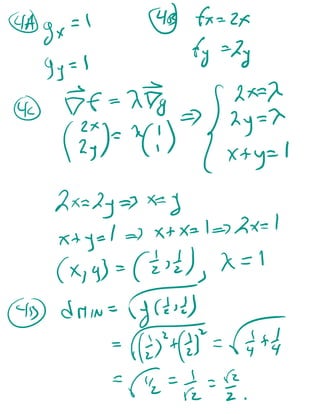 4A) gx = 1
gy = 1
4B) fx = 2x
fy = 2y
4C) ∇⃗f = λ∇⃗g ⇒ { 2x = λ
(2x 2y) = λ(1 1) 2y = λ
x + y = 1
2x = 2y ⇒ x = y
x + y = 1 ⇒ x + x = 1 ⇒ 2x = 1
(x, y) = (1/2, 1/2), λ = 1
4D) dMIN = √f(1/2, 1/2)
= √((1/2)² + (1/2)²) = √(1/4 + 1/4)
= √1/2 = 1/√2 = √2/2.